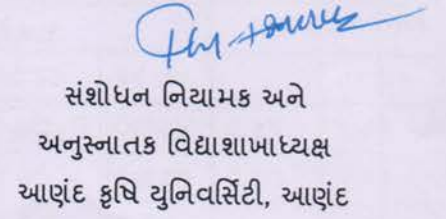 સંશોધન નિયામક અને
અનુસ્નાતક વિદ્યાશાખાધ્યક્ષ
આણંદ કૃષિ યુનિવર્સિટી, આણંદ